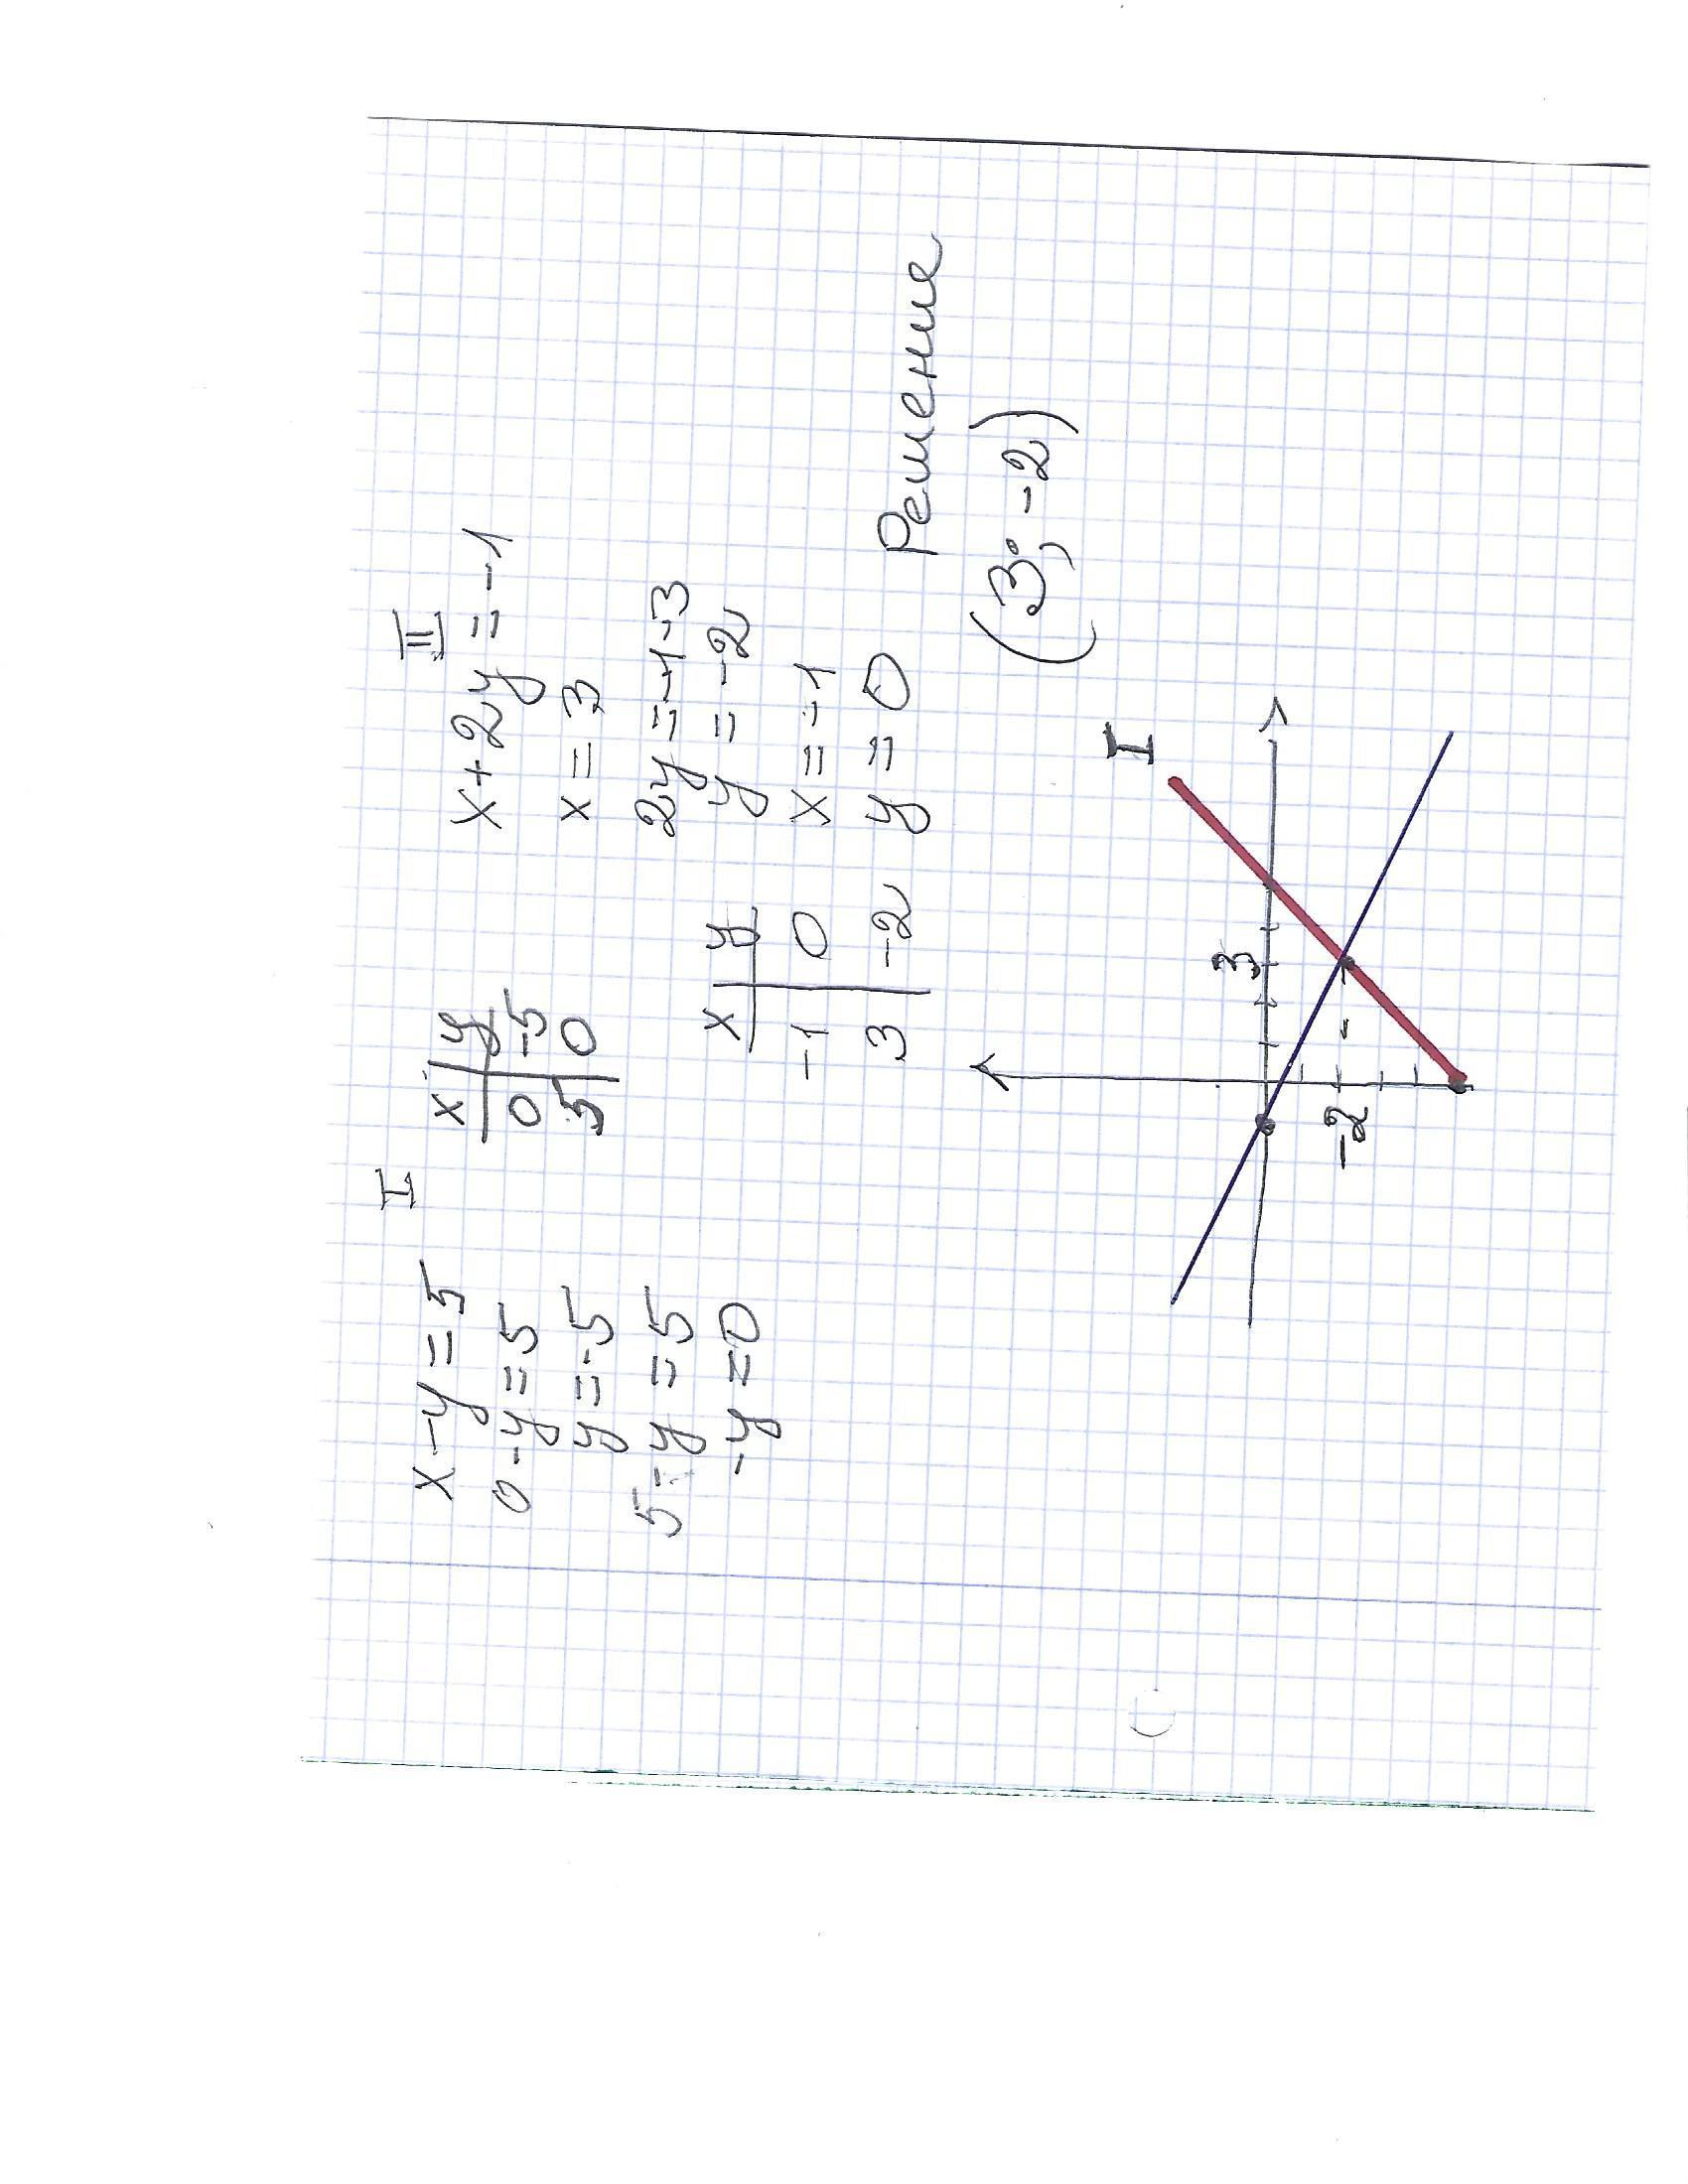 I
x - y = 5
0 - y = 5
y = -5
5 - y = 5
-y = 0
x y
0 -5
5 0
II
x + 2y = -1
x = 3
2y = -1-3
y = -2
x = -1
y = 0
x y
-1 0
3 -2
Решение
(3; -2)
I
3
-2